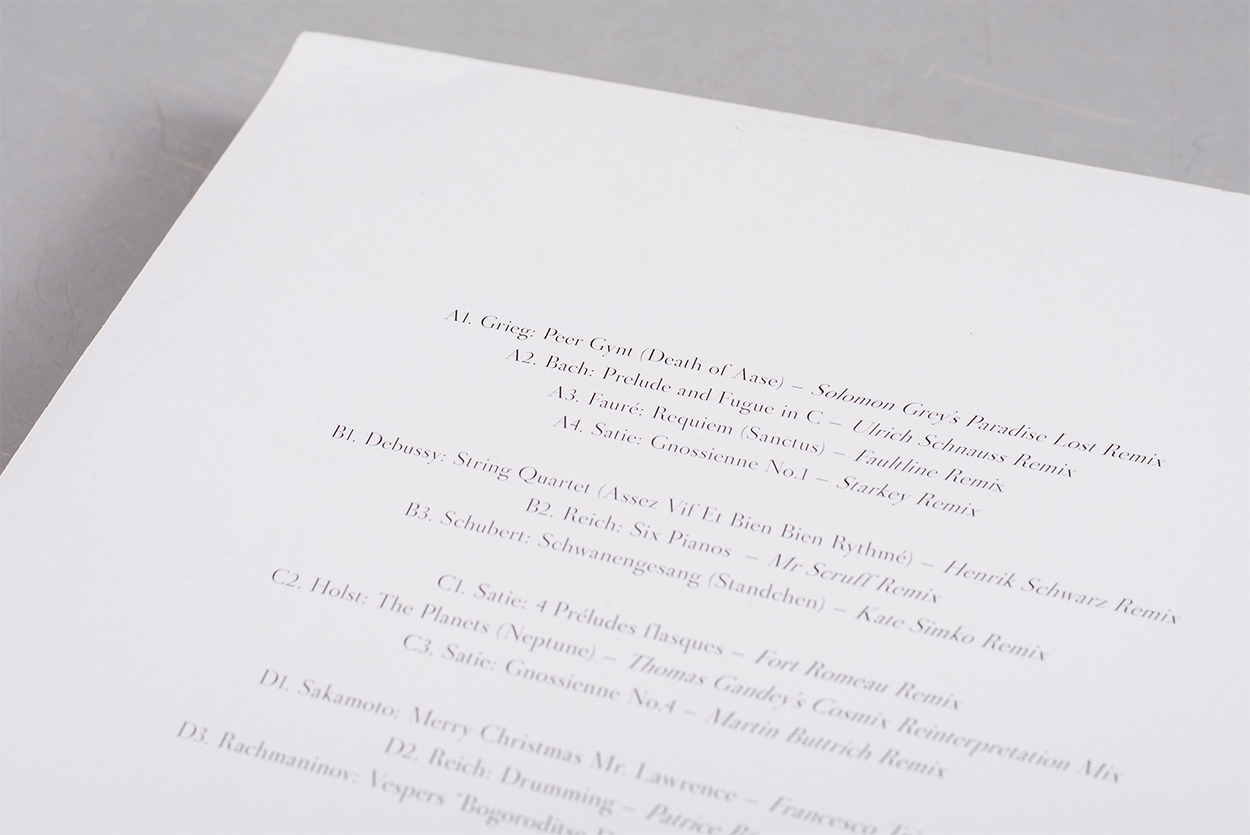 A1. Grieg: Peer Gynt (Death of Aase) – Solomon Grey's Paradise Lost Remix
A2. Bach: Prelude and Fugue in C – Ulrich Schnauss Remix
A3. Fauré: Requiem (Sanctus) – Faultline Remix
A4. Satie: Gnossienne No.1 – Starkey Remix
B1. Debussy: String Quartet (Assez Vif Et Bien Bien Rythmé) – Henrik Schwarz Remix
B2. Reich: Six Pianos – Mr Scruff Remix
B3. Schubert: Schwanengesang (Standchen) – Kate Simko Remix
C1. Satie: 4 Préludes flasques – Fort Romeau Remix
C2. Holst: The Planets (Neptune) – Thomas Gandey's Cosmix Reinterpretation Mix
C3. Satie: Gnossienne No.4 – Martin Buttrich Remix
D1. Sakamoto: Merry Christmas Mr. Lawrence – Francesco
D2. Reich: Drumming – Patrice
D3. Rachmaninov: Vespers "Bogoroditse